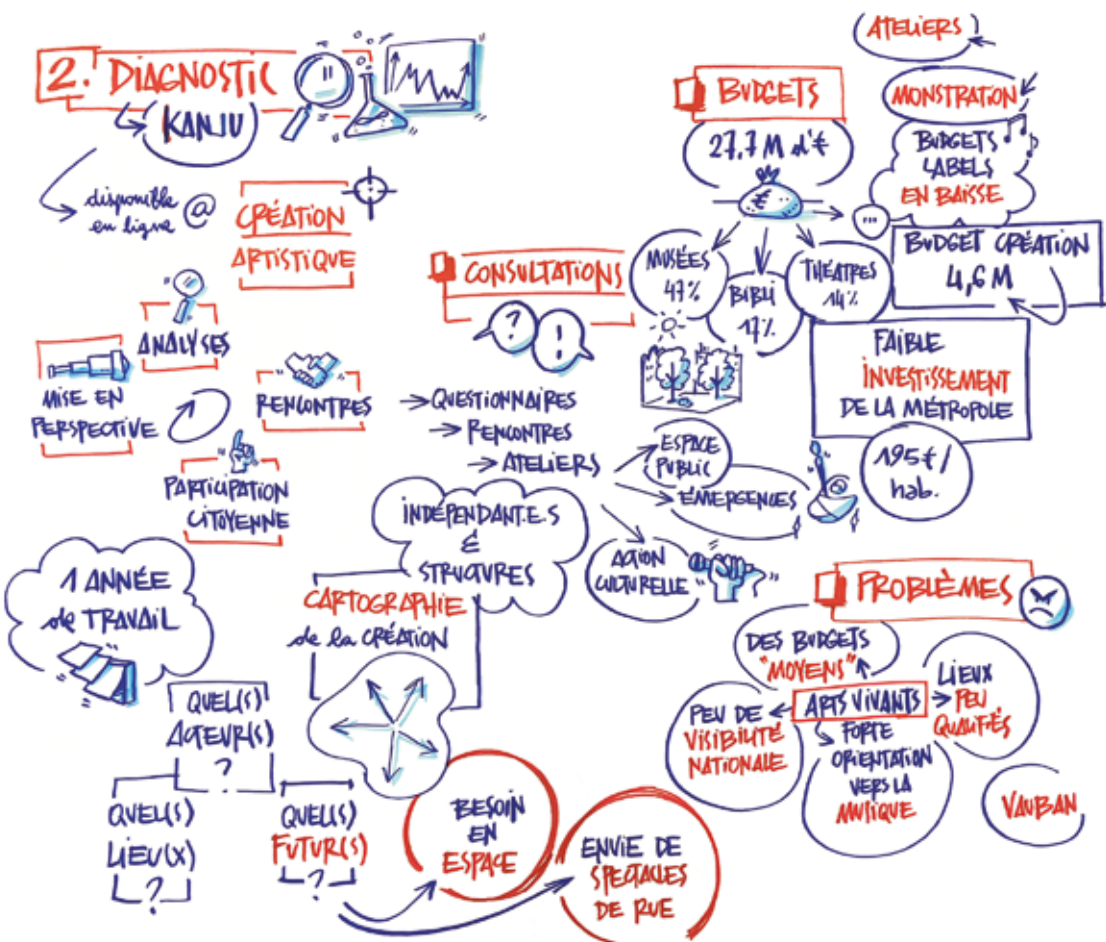 2. DIAGNOSTIC
KANJU
disponible
en ligne @
CRÉATION
ARTISTIQUE
ANALYSES
MISE EN
PERSPECTIVE
RENCONTRES
PARTICIPATION
CITOYENNE
1 ANNÉE
de TRAVAIL
QUEL(S)
ACTEUR(S)
?
QUEL(S)
LIEU(X)
?
QUEL(S)
FUTUR(S)
?
CONSULTATIONS
? !
→ QUESTIONNAIRES
→ RENCONTRES
→ ATELIERS
ESPACE
PUBLIC
ÉMERGENCES
ACTION
CULTURELLE
INDÉPENDANT.E.S
&
STRUCTURES
CARTOGRAPHIE
de la CRÉATION
BESOIN
EN
ESPACE
ENVIE DE
SPECTACLES
DE RUE
BUDGETS
27,7 M d'€
€
MUSÉES
47%
BIBLI
17%
THÉATRES
14%
...
ATELIERS
MONSTRATION
BUDGETS
LABELS
EN BAISSE
BUDGET CRÉATION
4,6 M
FAIBLE
INVESTISSEMENT
DE LA MÉTROPOLE
195€/
hab.
PROBLÈMES
DES BUDGETS
"MOYENS"
ARTS VIVANTS
PEU DE
VISIBILITÉ
NATIONALE
LIEUX
PEU
QUALIFIÉS
FORTE
ORIENTATION
VERS LA
MUSIQUE
VAUBAN